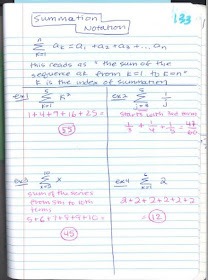 Summation
Notation
133
n
Σ ak = a1 + a2 + a3 + ... an
k=1
this reads as "the sum of the
sequence ak from k=1 to k=n"
k is the index of summation
ex1 5
Σ k²
k=1
1+4+9+16+25=
55
ex2 5
Σ 1/j
j=3
starts with 3rd term
1/3 + 1/4 + 1/5 = 47/60
ex3 10
Σ x
x=5
sum of the series
from 5th to 10th
terms
5+6+7+8+9+10=
45
ex4 6
Σ 2
k=1
2+2+2+2+2+2
=12